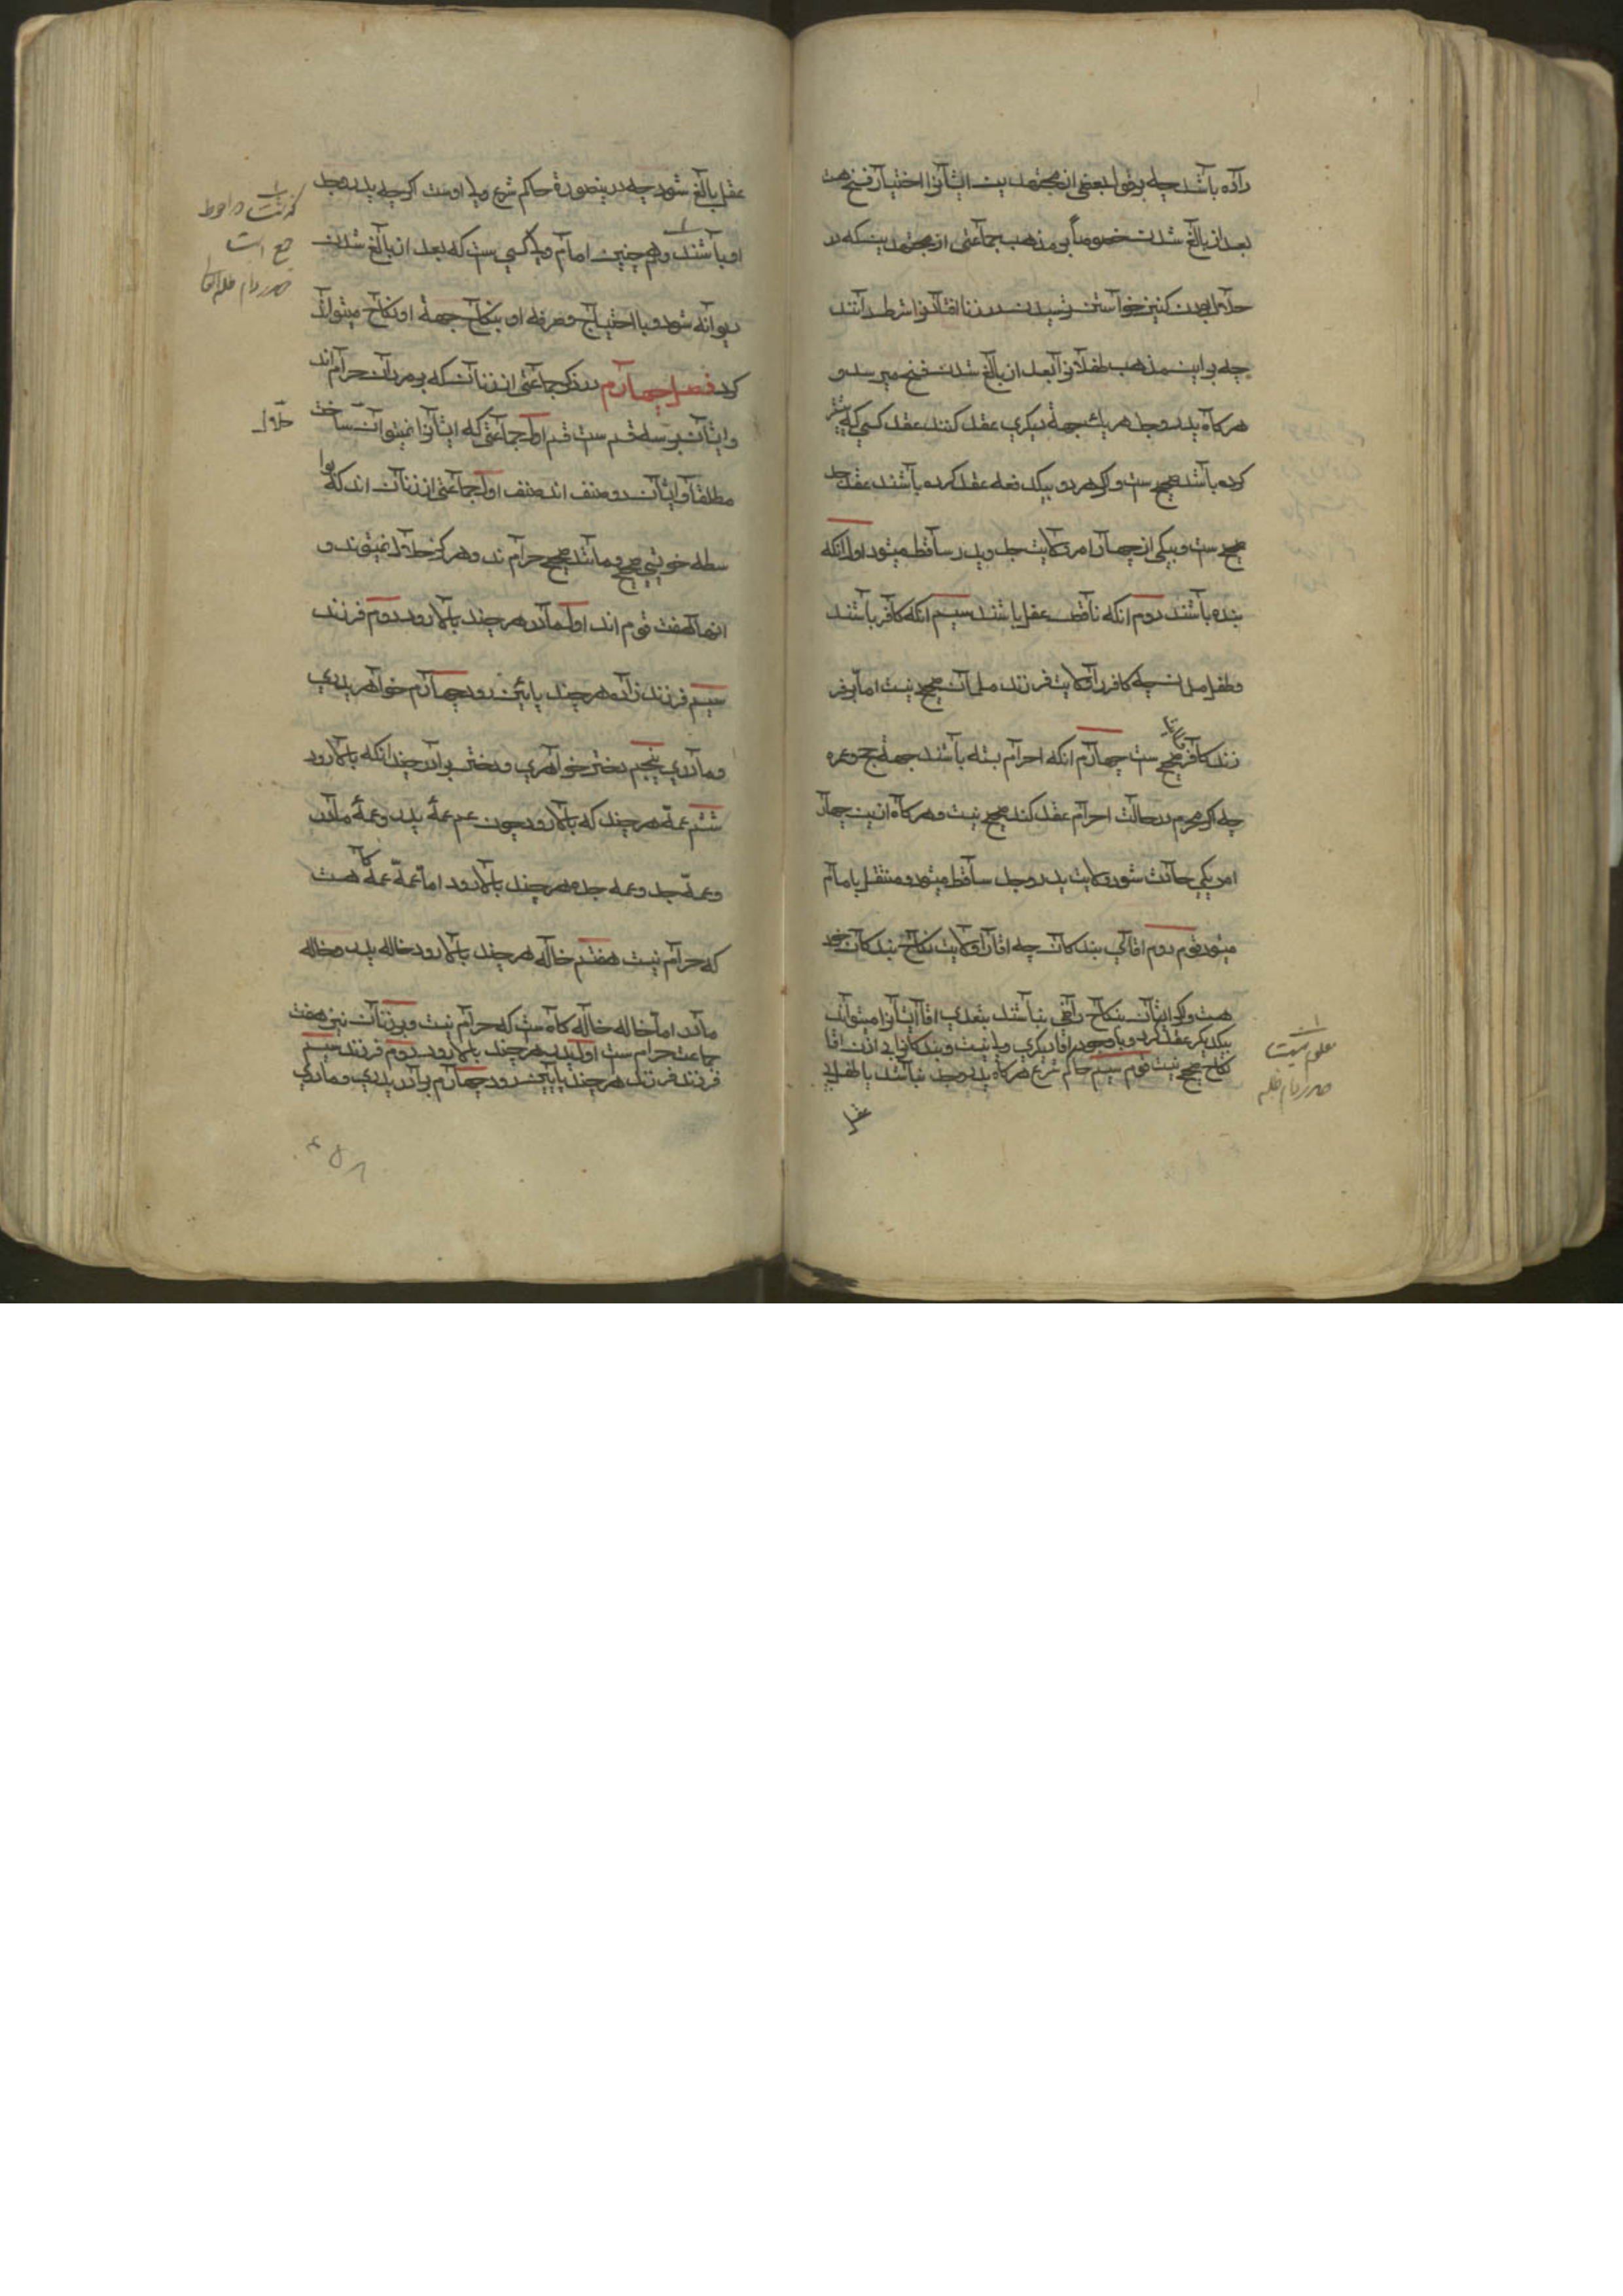 داده باشد چه بر قول بعضی از مجتهدین ایشانرا اختیار فسخ هست
بعد از بالغ شدن خصوصاً بر مذهب جماعتی از مجتهدین که در
حلال بودن کنیز خواستن ترسیدن در زنا افتادنرا شرط دانند
چه بر این مذهب طفلانرا بعد از بالغ شدن فسخ میرسد و
هرکاه پدر و جد هر یك جهة دیکری عقد کنند عقد کسی که پیشتر
کرده باشد صحیح ست و اکر هر دو بیکدفعه عقد کرده باشند عقد جد
صحیح ست و بیکی از چهار امر ولایت جد و پدر ساقط میشود اول انکه
بنده باشند دوم انکه ناقص عقل باشند سیم انکه کافر باشند
و طفل مسلمان چه کافر را ولایت فرزند مسلمان صحیح نیست اما بر فر
زند کافر صحیح ست چهارم انکه احرام بسته باشند جهة حج و عمره
چه اکر محرم در حالت احرام عقد کند صحیح نیست و هرکاه ازین چهار
امر یکی حادث شود ولایت پدر و جد ساقط میشود و منتقل بامام
میشود قوم دوم اقای بندکان چه اقا را ولایت نکاح بندکان خود
هست و اکر ایشان بنکاح راضی نباشند بتعدی اقا ایشانرا میتواند
بیکدیکر عقد کرد و با وجود اقا دیکری ولی نیست و بندکانرا بی اذن اقا
نکاح صحیح نیست قوم سیم حاکم شرع هرکاه پدر و جد نباشد یا طفل بی
عقل
معلوم نیست
صدر دام ظله
عقل بالغ شود چه درینصورة حاکم شرع ولی اوست اکرچه پدر و جد
او باشند و هم چنین امام ولی کسی ست که بعد از بالغ شدن
دیوانه شود و با احتیاج و صرفه او بنکاح جهة او نکاح میتواند
کرد فصل چهارم در ذکر جماعتی از زنان که بر مردان حرام اند
و ایشان بر سه قسم ست قسم اول جماعتی که ایشانرا نمیتوان ساخت
حلال
مطلقاً و ایشان دو صنف اند صنف اول جماعتی از زنان اند که بوا
سطه خویشی صحیح و مانند صحیح حرام ند و هرکز حلال نمیشوند و
انها هفت قوم اند اول مادر هر چند بالا رود دوم فرزند
سیم فرزند زاده هر چند پایین رود چهارم خواهر پدری
و مادری پنجم دختر خواهری و دختر برادر چندانکه بالا رود
ششم عمه هر چند که بالا رود چون عم عمهٔ پدر و عمهٔ مادر
و عمهٔ جد و عمه جده هر چند بالا رود اما عمهٔ عمه کاه هست
که حرام نیست هفتم خاله هر چند بالا رود خاله پدر و خاله
مادر اما خاله خاله کاه ست که حرام نیست و بر زنان نیز هفت
جماعت حرام ست اول پدر هر چند بالا رود دوم فرزند سیم
فرزند فرزند هر چند پایین رود چهارم برادر پدری و مادری